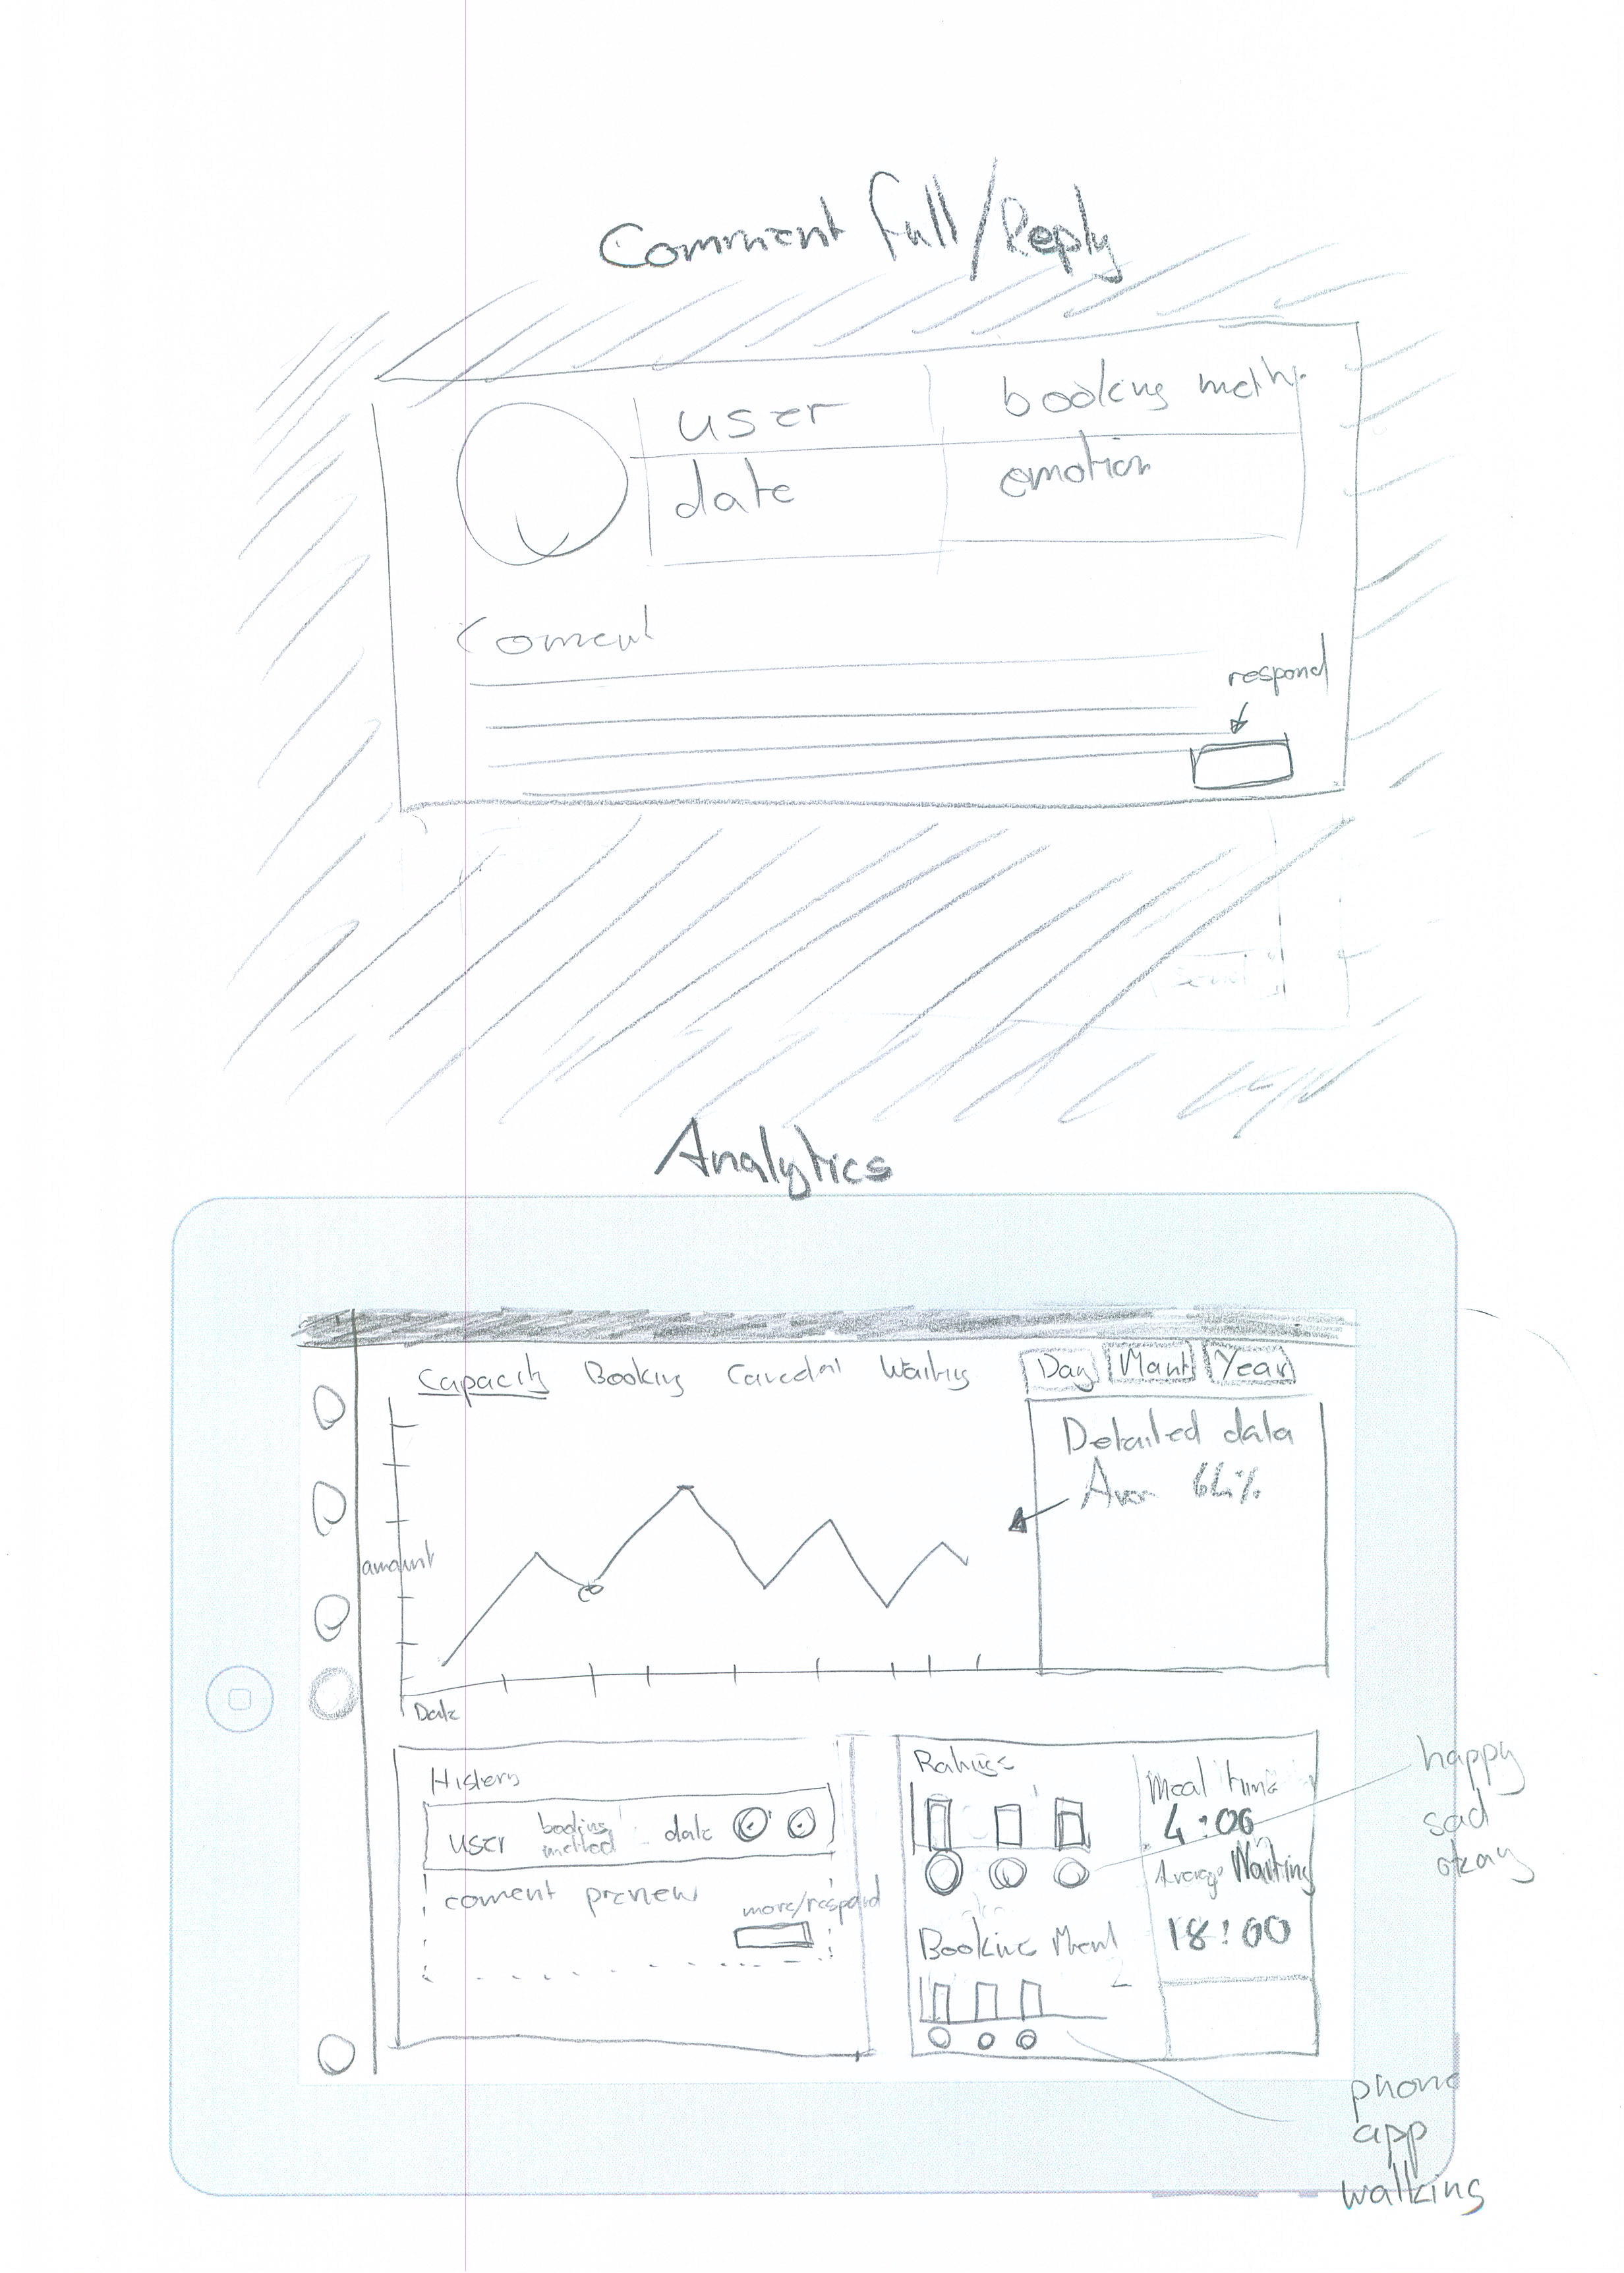 Comment full/Reply
user
booking meth.
date
emotion
Coment
respond
Analytics
Capacity Booking Waiting
Day Mont Year
Detailed data
Aver
amount
Date
History
user booking method date
coment preview
more/respond
Ratings
Meal time
4:00
Average Waiting
18:00
Booking
happy
sad
okay
phone
app
walking